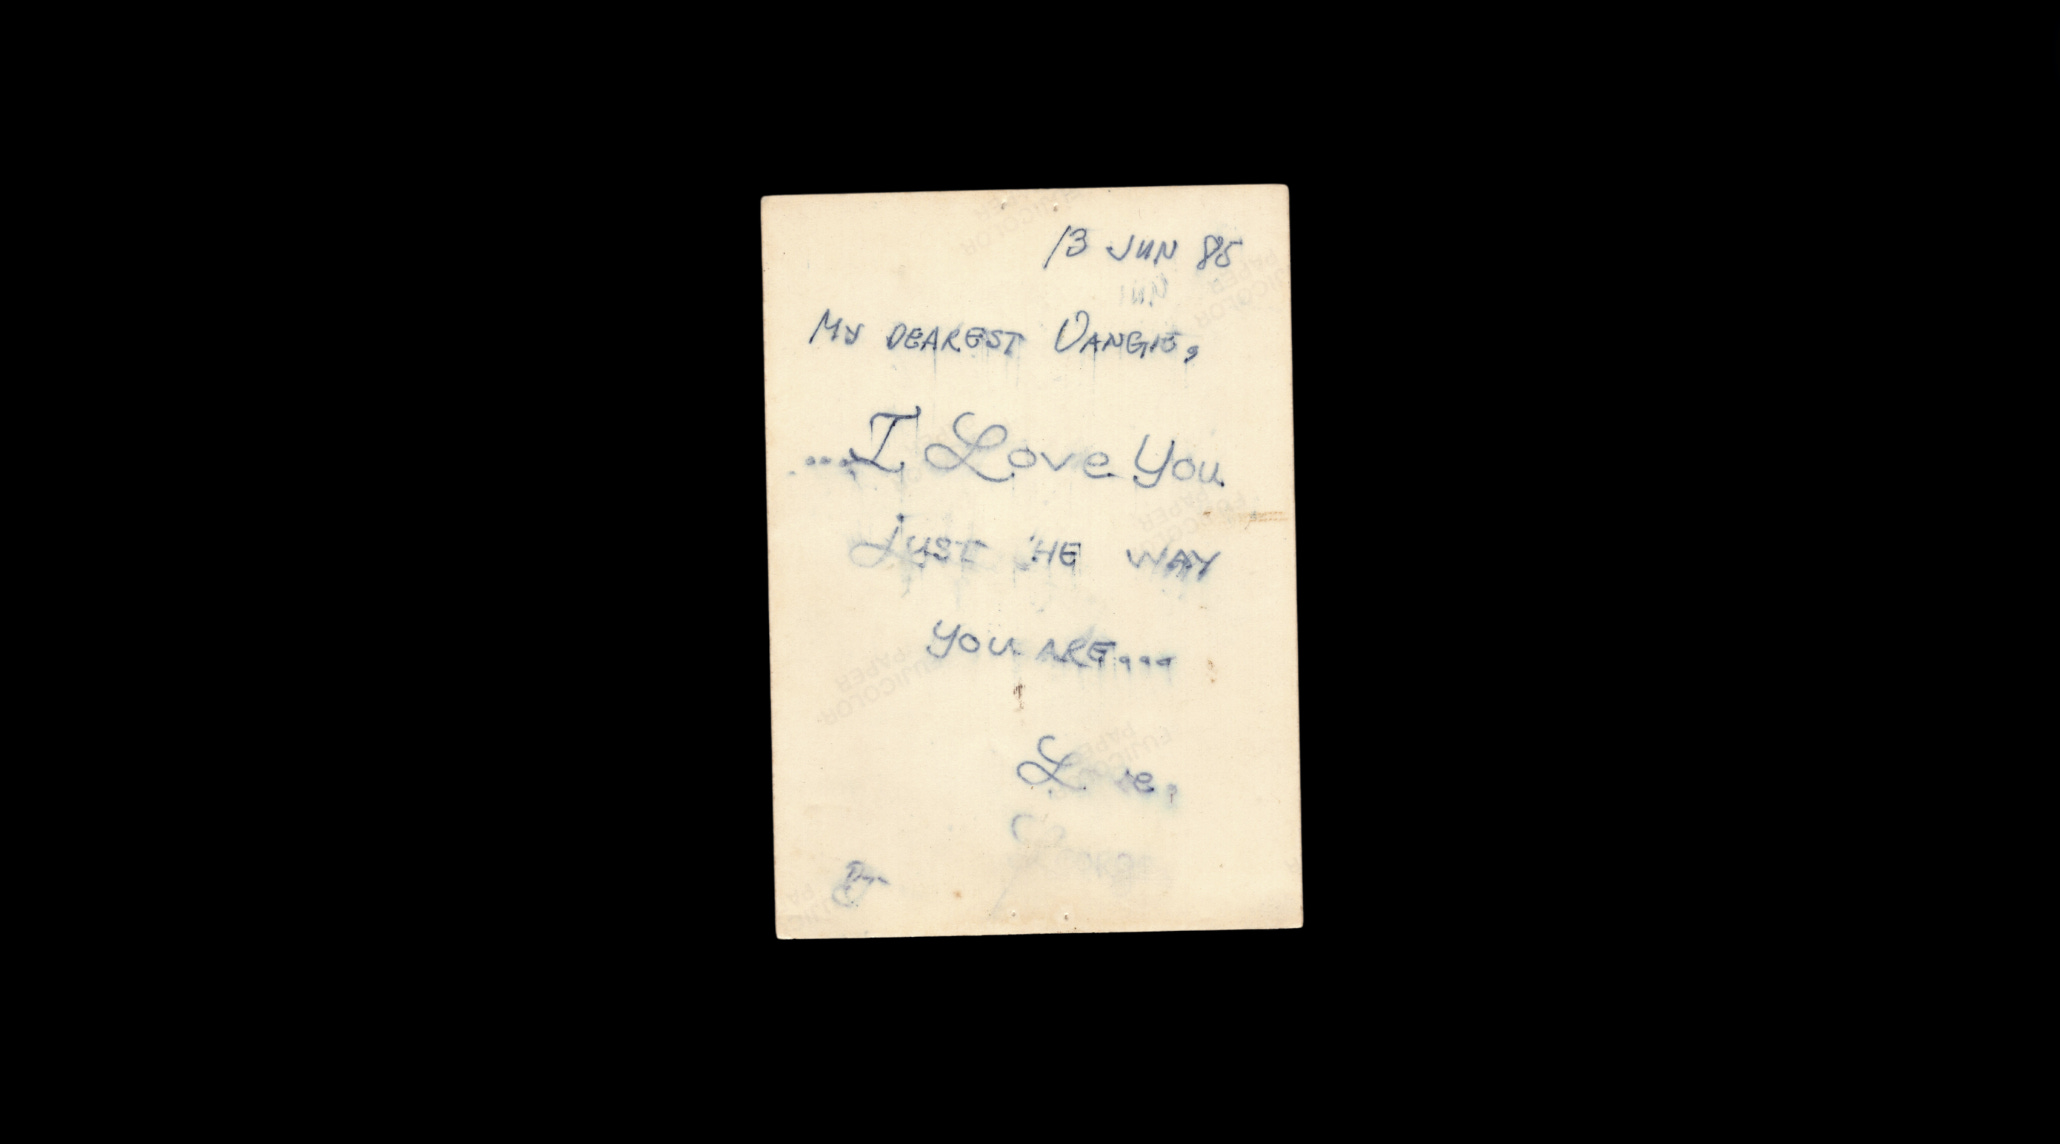 13 JUN 85
JUN
MY DEAREST VANGIE,
....I Love You
JUST HE WAY
YOU ARE....
L e,
FUJICOLOR
PAPER